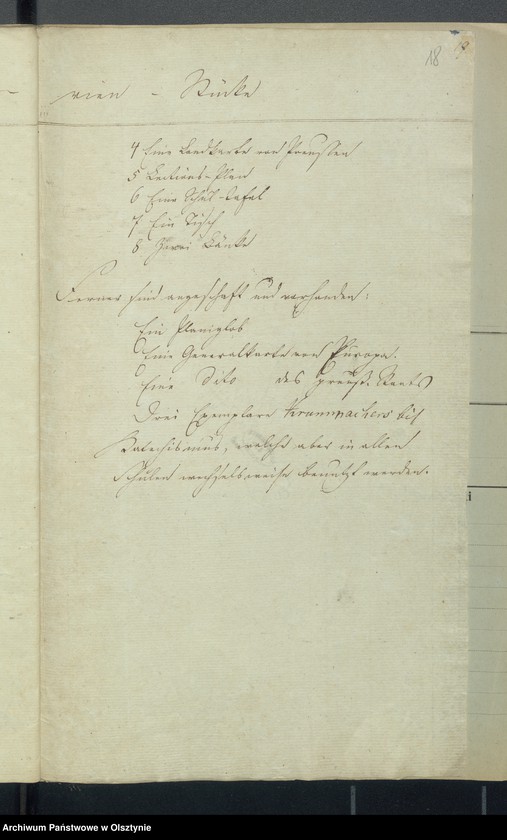 18
19
rien - Stücke
4 Eine Landkarte von Preussen
5 Lections-Plan
6 Eine Schul-Tafel
7 Ein Tisch
8 Zwei Bänke
Ferner sind angeschaft und vorhanden:
Ein Planiglob
Eine Generalkarte von Europa.
Eine Dito des preuß. Staats
Drei Exemplare Krummachers bib
Katechismus, welche aber in allen
Schulen wechselsweise benutzt werden.
Archiwum Państwowe w Olsztynie